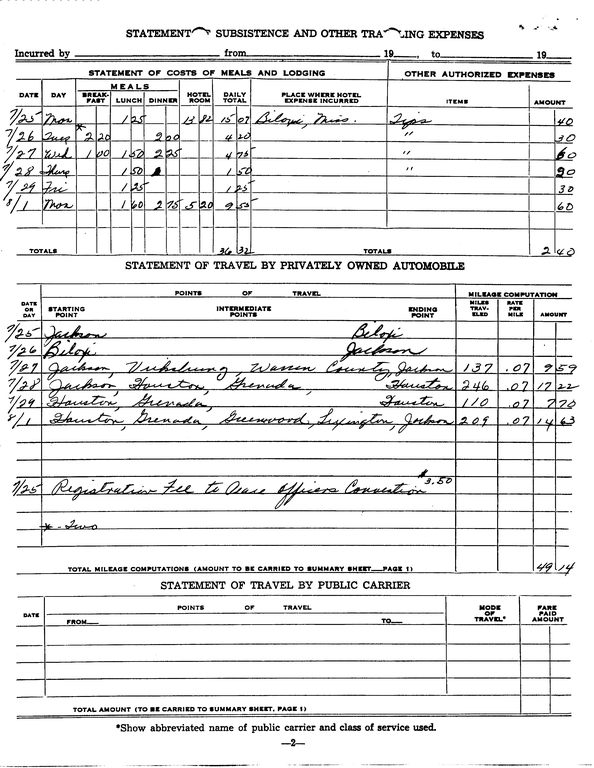 STATEMENT SUBSISTENCE AND OTHER TRA LING EXPENSES
Incurred by from 19 , to 19
STATEMENT OF COSTS OF MEALS AND LODGING OTHER AUTHORIZED EXPENSES
DATE DAY MEALS HOTEL ROOM DAILY TOTAL PLACE WHERE HOTEL EXPENSE INCURRED ITEMS AMOUNT
BREAK-FAST LUNCH DINNER
7/25 Mon 1 25 13 82 15 07 Biloxi, Miss. Tips 40
7/26 Tues * 2 20 2 00 4 20 " 30
7/27 Wed 1 00 1 50 2 25 4 75 " 60
7/28 Thurs 1 50 1 50 " 20
7/29 Fri 1 25 1 25 30
8/1 Mon 1 60 2 75 5 20 9 55 60
TOTALS 36 32 TOTALS 2 40
STATEMENT OF TRAVEL BY PRIVATELY OWNED AUTOMOBILE
DATE OR DAY POINTS OF TRAVEL MILEAGE COMPUTATION
STARTING POINT INTERMEDIATE POINTS ENDING POINT MILES TRAV-ELED RATE PER MILE AMOUNT
7/25 Jackson Biloxi
7/26 Biloxi Jackson
7/27 Jackson, Vicksburg, Warren County, Jackson 137 .07 9 59
7/28 Jackson, Houston, Grenada, Houston 246 .07 17 22
7/29 Houston, Grenada, Houston 110 .07 7 70
8/1 Houston, Grenada, Greenwood, Lexington, Jackson 209 .07 14 63
7/25 Registration Fee to Peace Officers Convention $3.50
* - Two
TOTAL MILEAGE COMPUTATIONS (AMOUNT TO BE CARRIED TO SUMMARY SHEET—PAGE 1) 49 14
STATEMENT OF TRAVEL BY PUBLIC CARRIER
DATE POINTS OF TRAVEL MODE OF TRAVEL* FARE PAID AMOUNT
FROM— TO—
TOTAL AMOUNT (TO BE CARRIED TO SUMMARY SHEET, PAGE 1)
*Show abbreviated name of public carrier and class of service used.
—2—